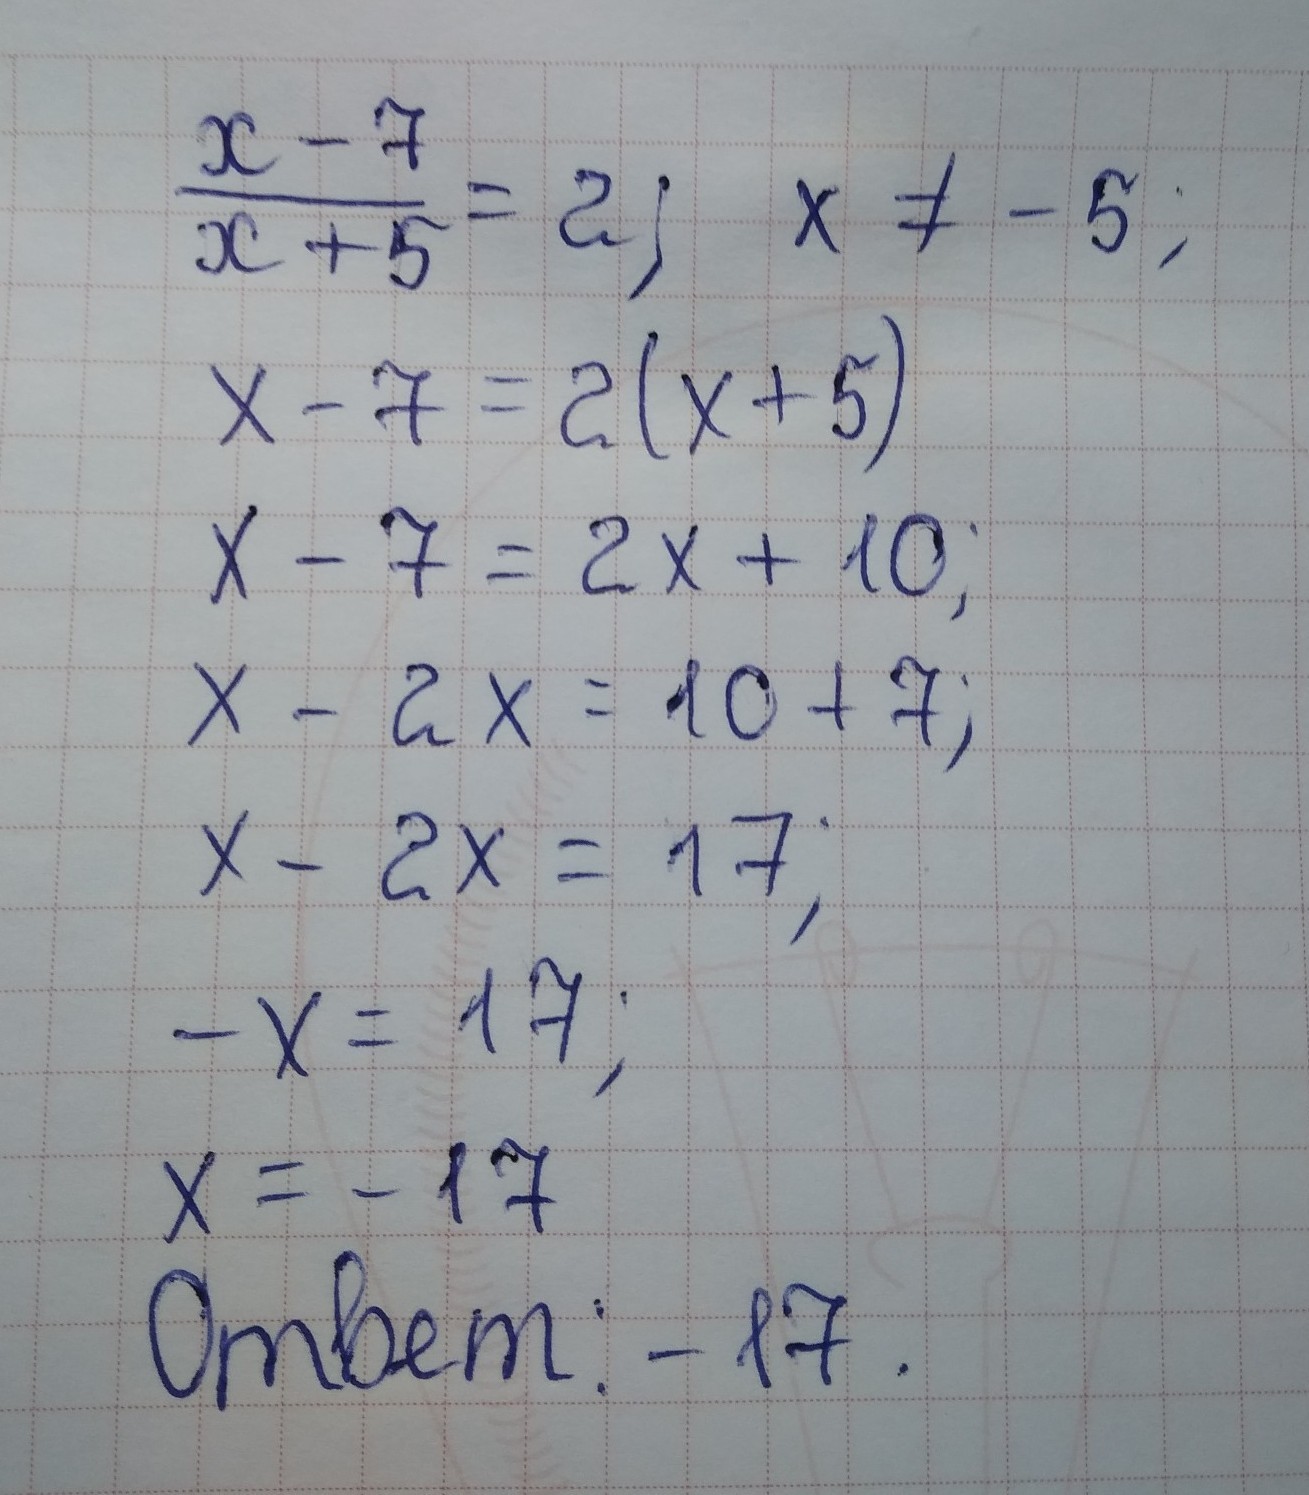 x - 7
x + 5 = 2; x ≠ - 5;
x - 7 = 2(x + 5)
x - 7 = 2x + 10;
x - 2x = 10 + 7;
x - 2x = 17;
-x = 17;
x = - 17
Ответ: - 17.